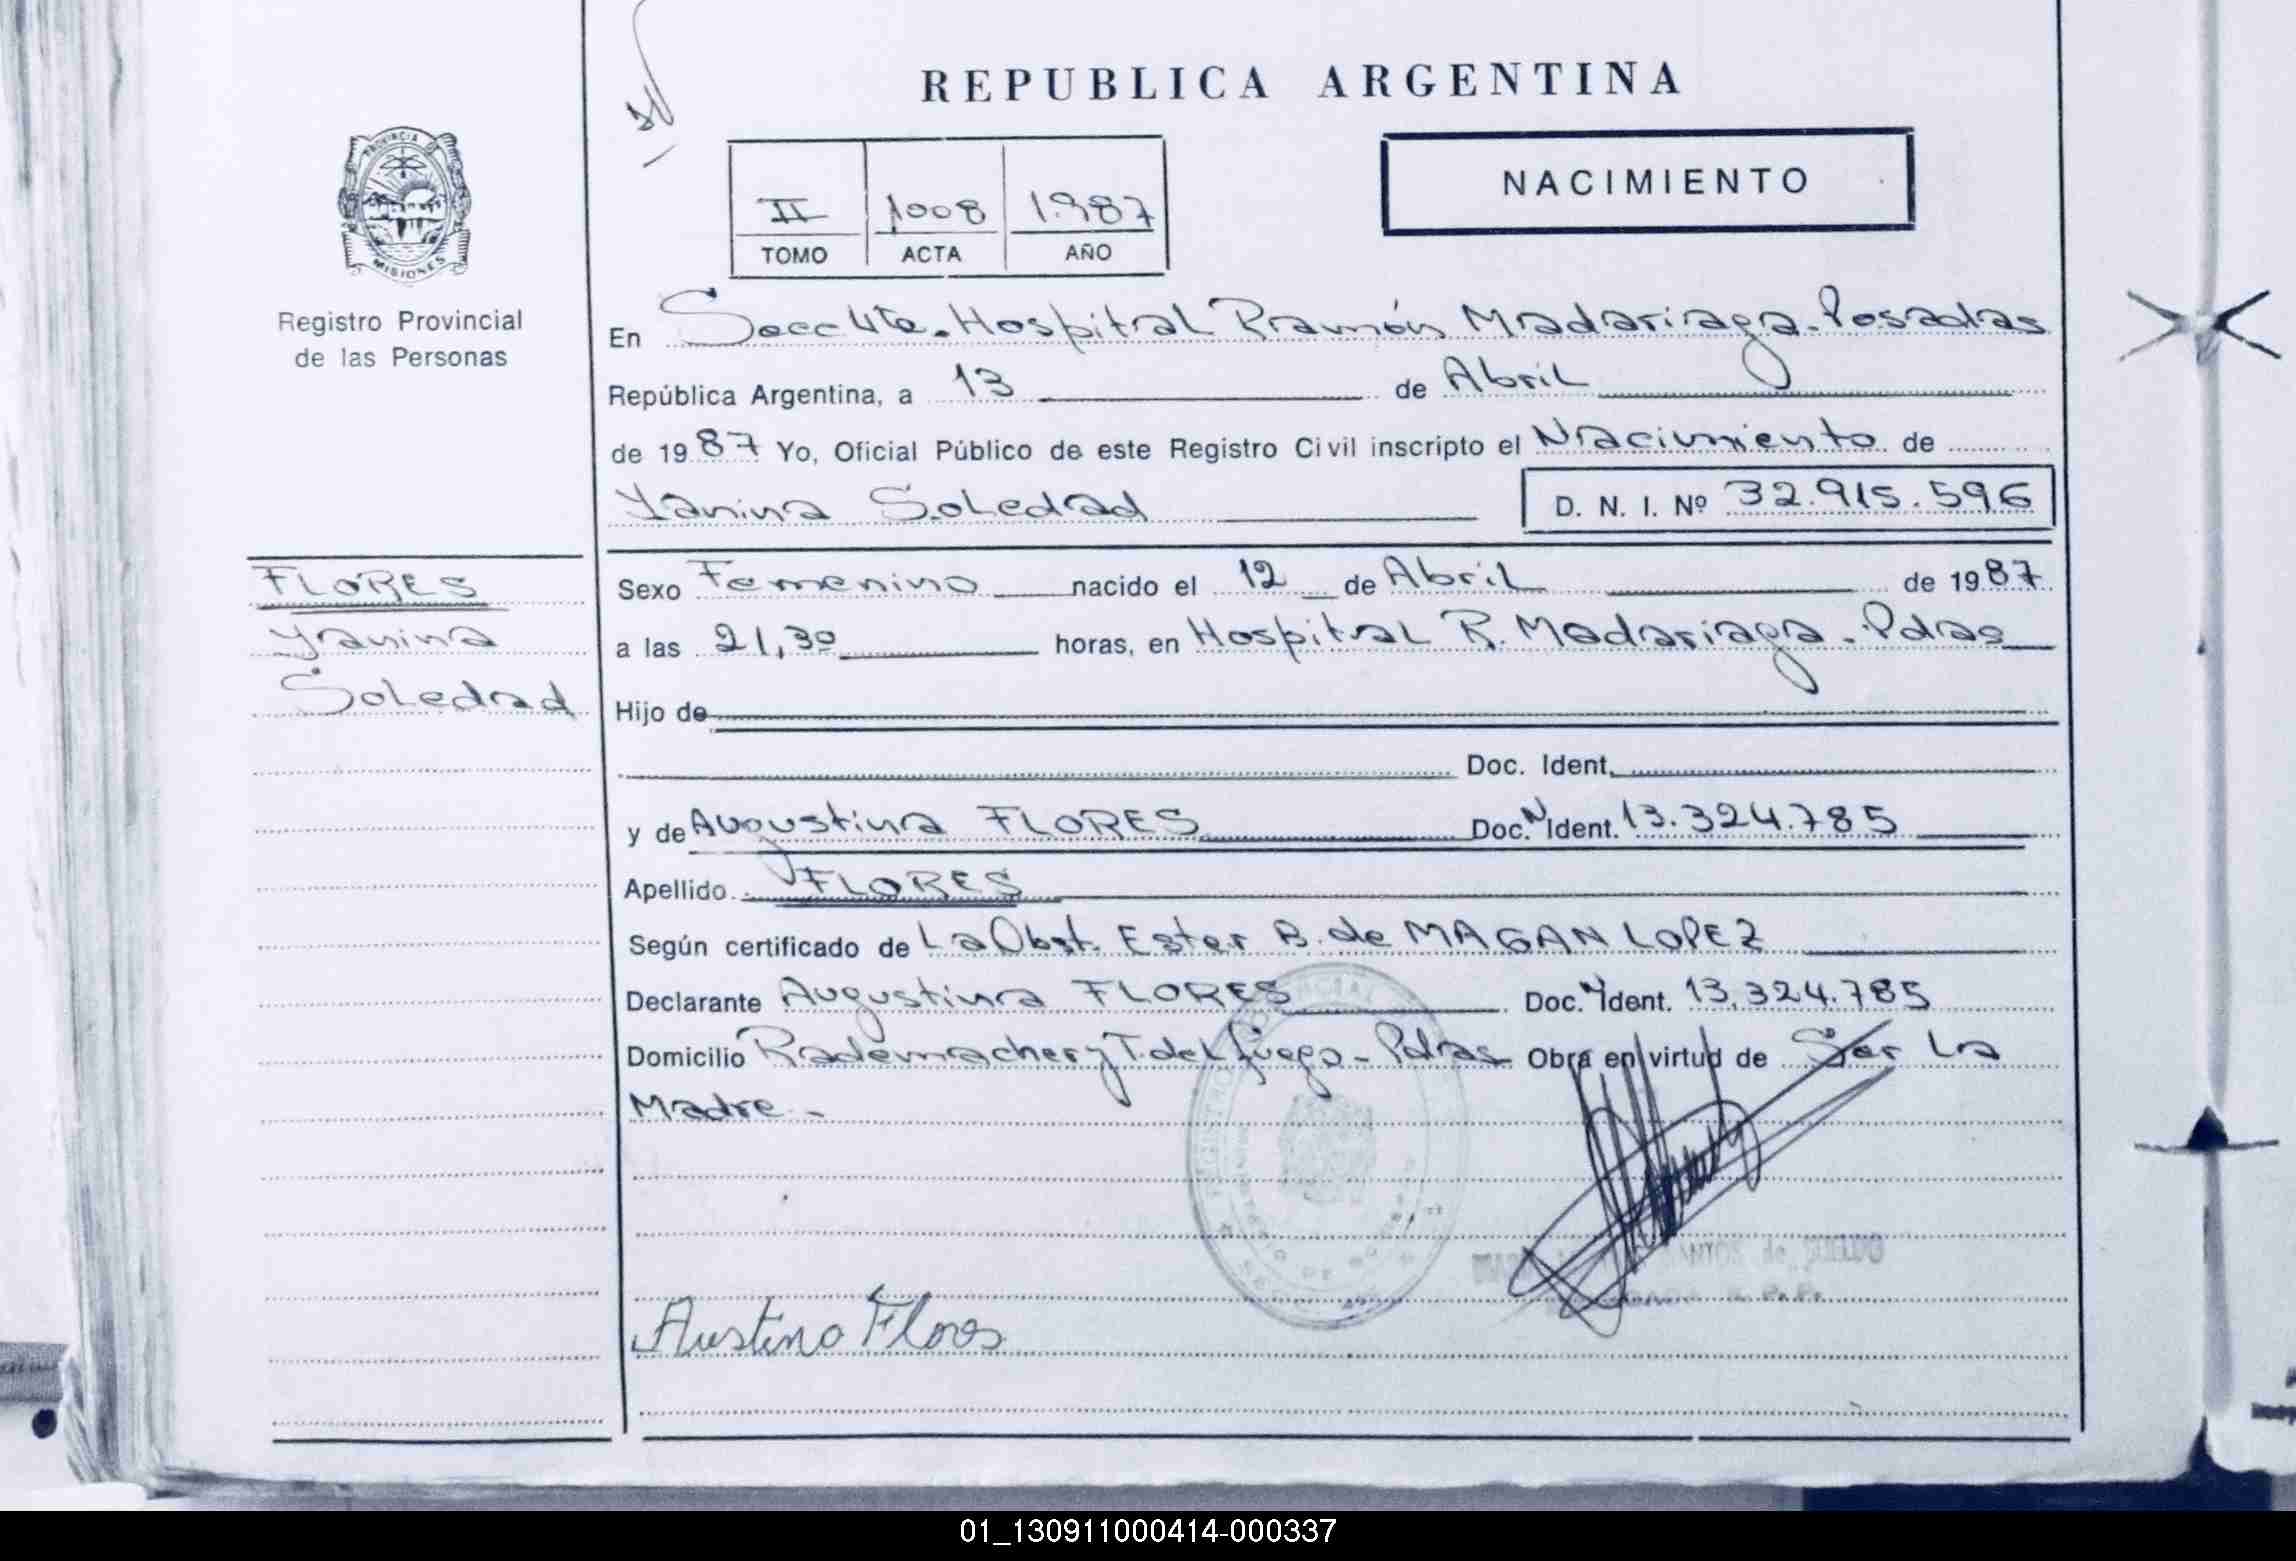 REPUBLICA ARGENTINA
NACIMIENTO
II 1008 1.987
TOMO ACTA AÑO
PROVINCIA DE
MISIONES
Registro Provincial
de las Personas
En Secc 4ta. Hospital Ramón Madariaga. Posadas
República Argentina, a 13 de Abril
de 1987 Yo, Oficial Público de este Registro Civil inscripto el Nacimiento de
Yanina Soledad D. N. I. Nº 32.915.596
FLORES
Yanina
Soledad
Sexo Femenino nacido el 12 de Abril de 1987
a las 21,30 horas, en Hospital R. Madariaga. Pdas
Hijo de
Doc. Ident.
y de Augustina FLORES Doc. N Ident. 13.324.785
Apellido FLORES
Según certificado de La Obst. Ester B. de MAGAN LOPEZ
Declarante Augustina FLORES Doc. N Ident. 13.324.785
Domicilio Rademacher y T. del fuego - Pdas Obra en virtud de Ser La
Madre.-
Austina Flores
01_130911000414-000337